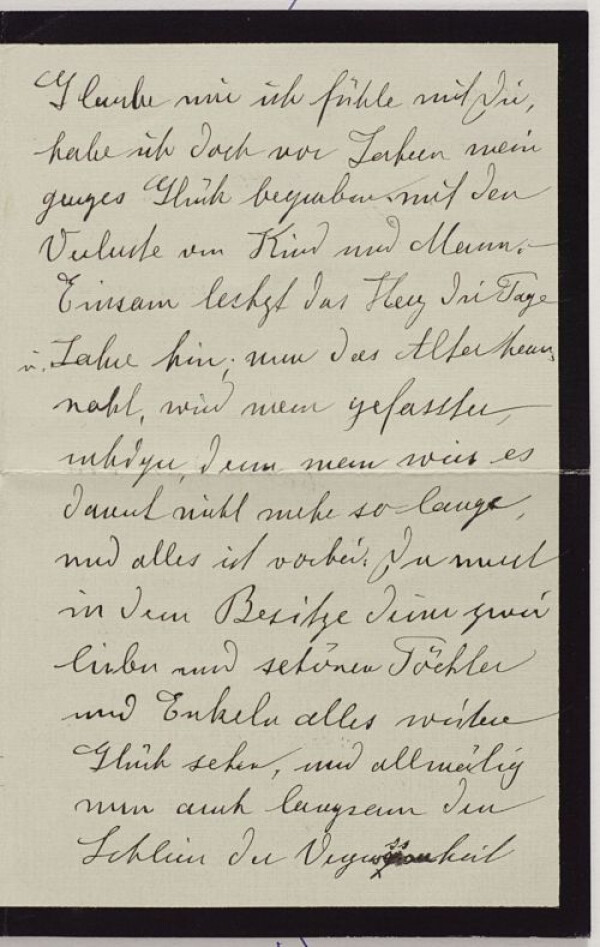 Glaube mir ich fühle mit Dir,
habe ich doch vor Jahren mein
ganzes Glück begraben mit den
Verluste von Kind und Mann. –
Einsam lebt das Herz die Tage
u. Jahre hin, nun das Alter heran
naht, wird man gefasster,
ruhiger, denn man weis es
dauert nicht mehr so lange,
und alles ist vorbei. Du musst
in dem Besitze deiner zwei
lieben und schönen Töchter
und Enkeln alles weitere
Glück sehen, und allmälig
nun auch langsam den
Schleier der Vergessenheit